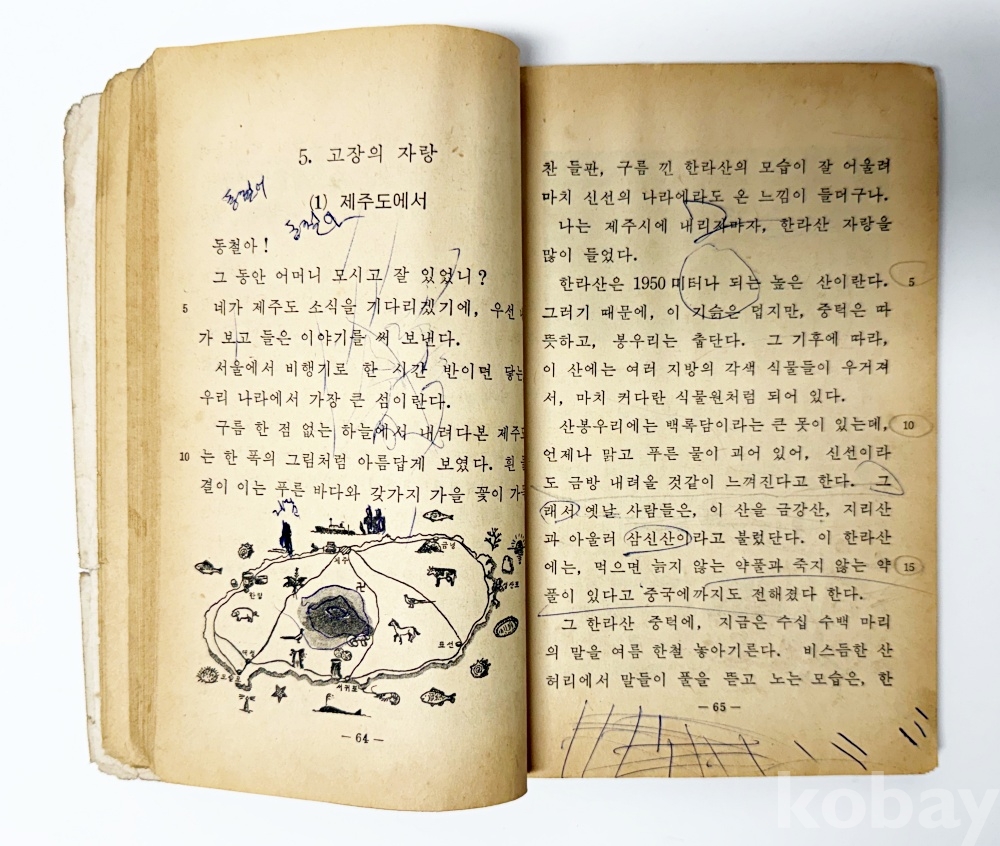 5. 고장의 자랑
(1) 제주도에서
동철아!
그 동안 어머니 모시고 잘 있었니?
5 네가 제주도 소식을 기다리겠기에, 우선
가 보고 들은 이야기를 써 보낸다.
서울에서 비행기로 한 시간 반이면 닿는
우리 나라에서 가장 큰 섬이란다.
구름 한 점 없는 하늘에서 내려다본 제주도
10 는 한 폭의 그림처럼 아름답게 보였다. 흰
결이 이는 푸른 바다와 갖가지 가을 꽃이 가득
제주
금녕
한림
성산포
표선
서귀포
모슬포
— 64 —
찬 들판, 구름 낀 한라산의 모습이 잘 어울려
마치 신선의 나라에라도 온 느낌이 들더구나.
나는 제주시에 내리자마자, 한라산 자랑을
많이 들었다.
한라산은 1950 미터나 되는 높은 산이란다. 5
그러기 때문에, 이 기슭은 덥지만, 중턱은 따
뜻하고, 봉우리는 춥단다. 그 기후에 따라,
이 산에는 여러 지방의 각색 식물들이 우거져
서, 마치 커다란 식물원처럼 되어 있다.
산봉우리에는 백록담이라는 큰 못이 있는데, 10
언제나 맑고 푸른 물이 괴어 있어, 신선이라
도 금방 내려올 것같이 느껴진다고 한다. 그
래서 옛날 사람들은, 이 산을 금강산, 지리산
과 아울러 삼신산이라고 불렀단다. 이 한라산
에는, 먹으면 늙지 않는 약물과 죽지 않는 약 15
풀이 있다고 중국에까지도 전해졌다 한다.
그 한라산 중턱에, 지금은 수십 수백 마리
의 말을 여름 한철 놓아기른다. 비스듬한 산
허리에서 말들이 풀을 뜯고 노는 모습은, 한
— 65 —
kobay